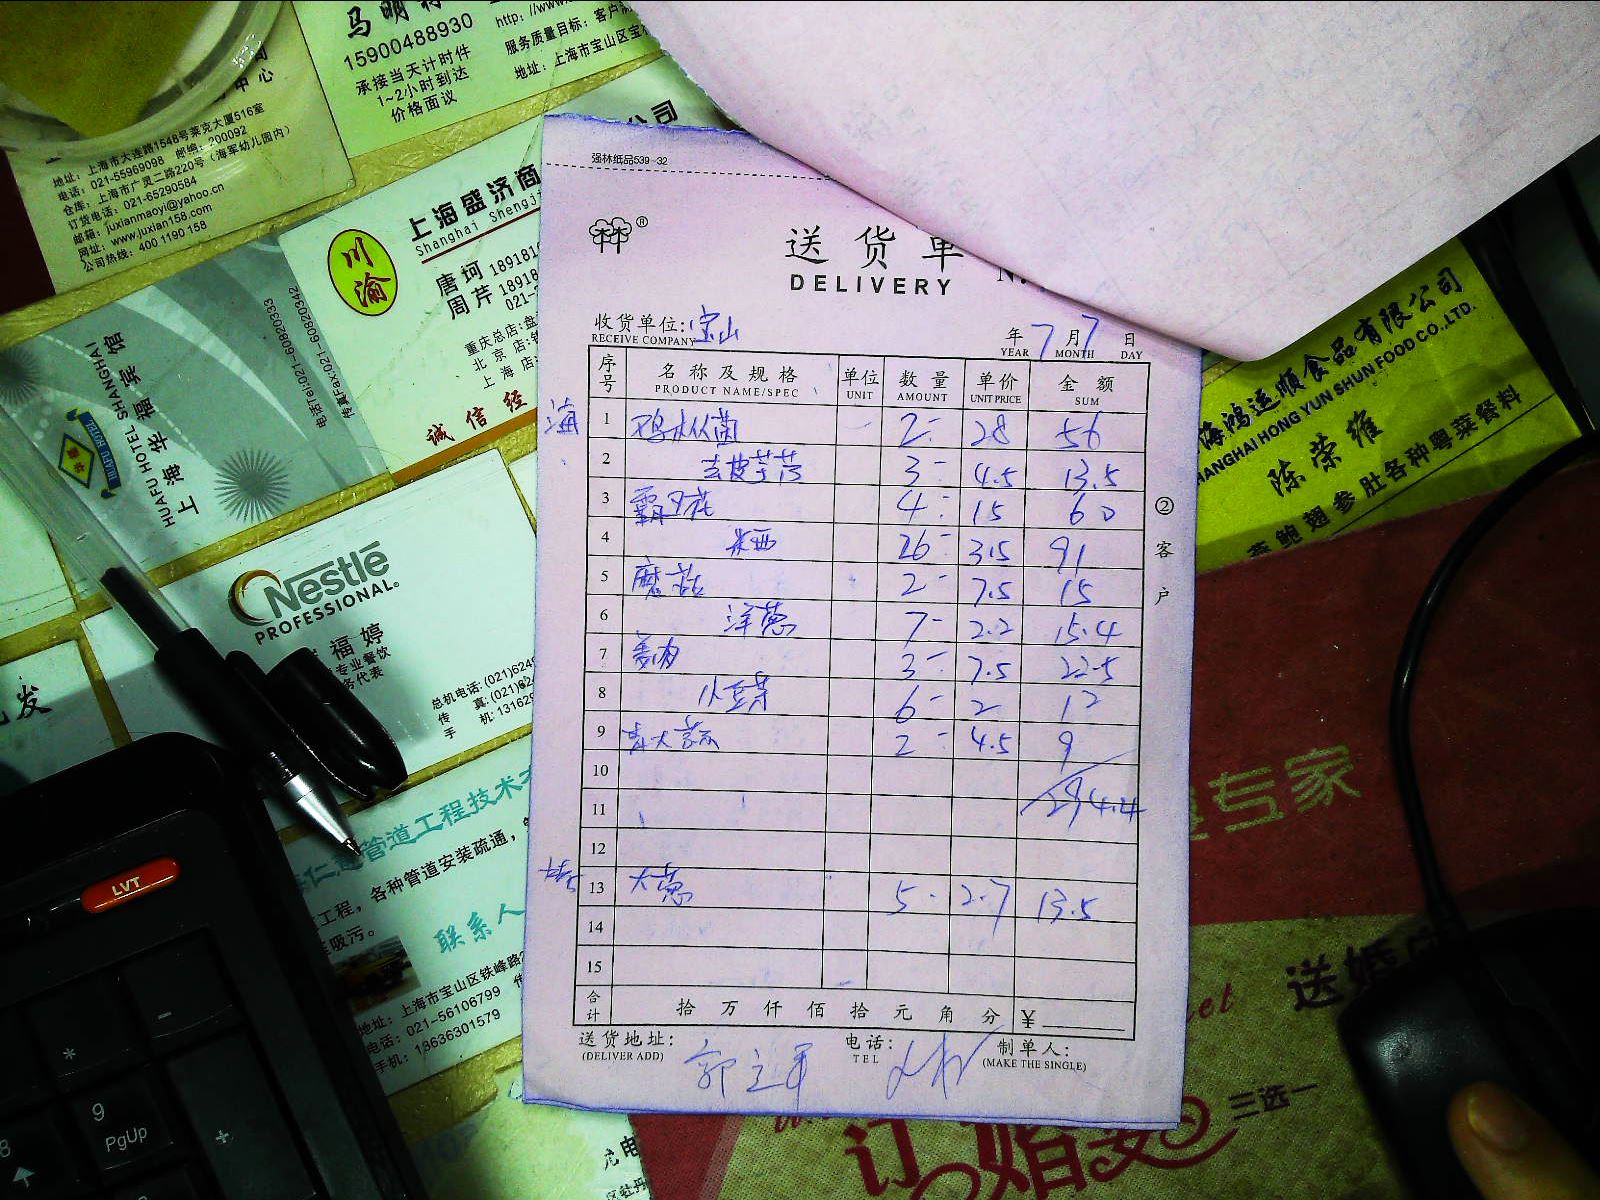 马明
15900488930
承接当天计时件
1~2小时到达
价格面议
http://www.
服务质量目标：客户
地址：上海市宝山区宝
中心
地址：上海市大连路1548号莱克大厦516室
电话：021-55969098 邮编：200092
仓库：上海市广灵二路220号（海军幼儿园内）
订货电话：021-65290584
邮箱：juxianmaoyi@yahoo.cn
网址：www.juxian158.com
公司热线：400 1190 158
公司
川渝
上海盛济商
Shanghai Shengji
唐珂 18918
周芹 18918
021-
重庆总店：盘
北京店：
上海店：
诚信经
上海华福宾馆
HUAFU HOTEL SHANGHAI
HUAFU HOTEL
电话Tel:021-60820333
传真Fax:021-60820342
Nestlé
PROFESSIONAL.
福婷
专业餐饮
务代表
总机电话：(021)624
传 真：(021)624
手 机：13162
发
管道工程技术
各种管道安装疏通，
工程，
吸污。
联系人
地址：上海市宝山区铁峰路2
电话：021-56106799
手机：18636301579
LVT
9
PgUp
8
*
-
+
强林纸品539-32
®
送货单
DELIVERY
收货单位：宝山
RECEIVE COMPANY
年 7 月 7 日
YEAR MONTH DAY
序号 名称及规格 单位 数量 单价 金额
PRODUCT NAME/SPEC UNIT AMOUNT UNIT PRICE SUM
海 1 鸡枞菌 2 28 56
2 去皮芋艿 3 4.5 13.5
3 霸王花 4 15 60
4 米西 26 3.5 91
5 蘑菇 2 7.5 15
6 洋葱 7 2.2 15.4
7 3 7.5 22.5
8 小豆芽 6 2 12
9 2 4.5 9
10
11 294.4
12
13 大葱 5 2.7 13.5
14
15
合计 拾 万 仟 佰 拾 元 角 分 ￥
②客户
送货地址：
(DELIVER ADD)
电话：
TEL
制单人：
(MAKE THE SINGLE)
郭立平
海鸿运顺食品有限公司
SHANGHAI HONG YUN SHUN FOOD CO.,LTD.
陈荣雍
燕鲍翅参肚各种粤菜餐料
专家
送婚
三选一
订婚宴